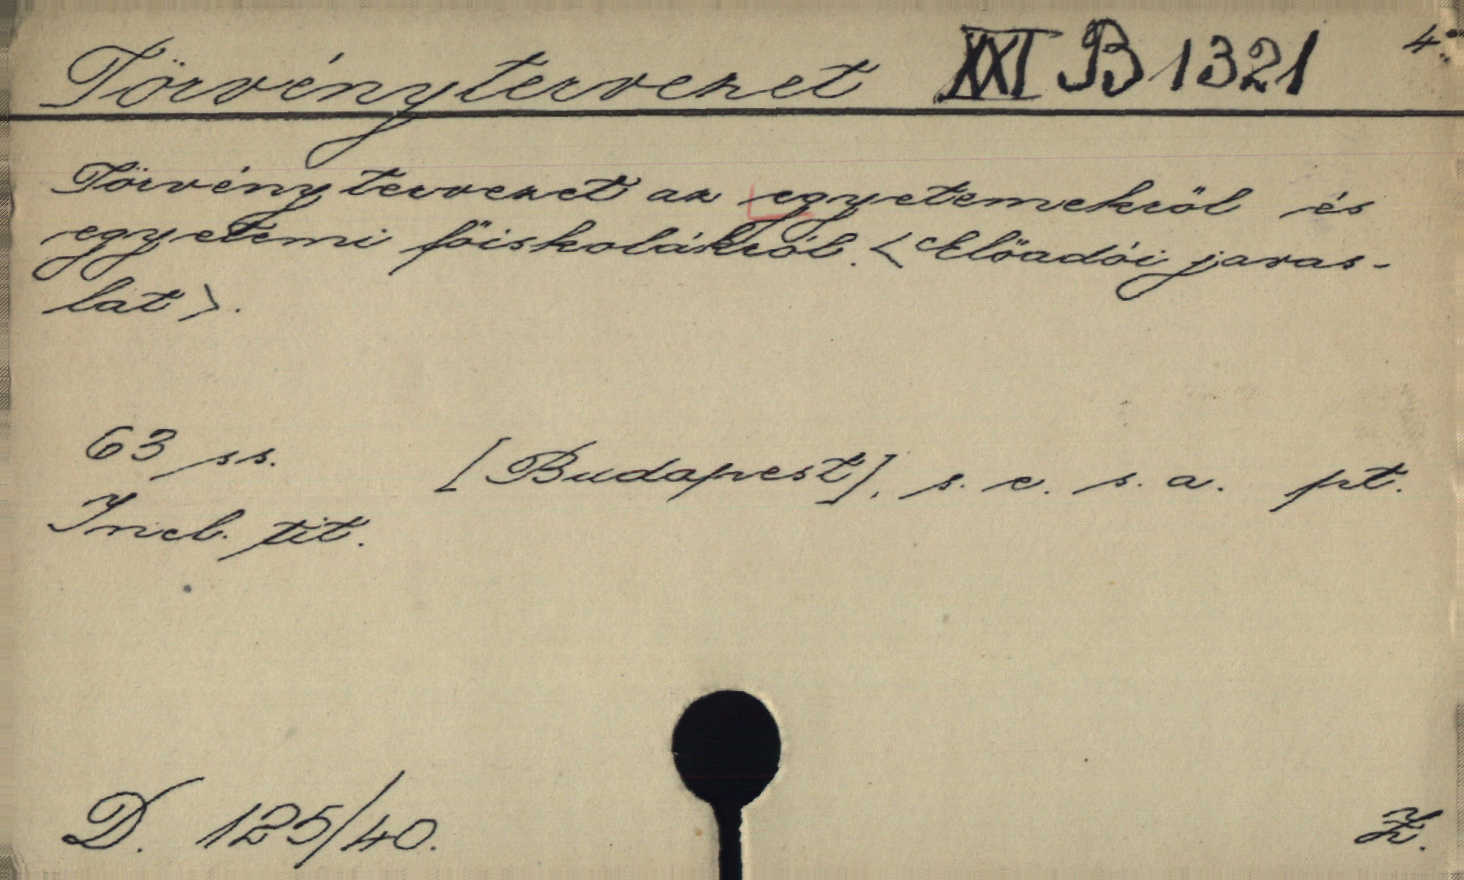 Törvénytervezet XXI B 1321 4°
Törvénytervezet az egyetemekről és
egyetemi főiskolákról. <Előadói javas-
lat>.
63 ss. [Budapest], s. e. s. a. pt.
Incl. tit.
D. 125/40. Z.